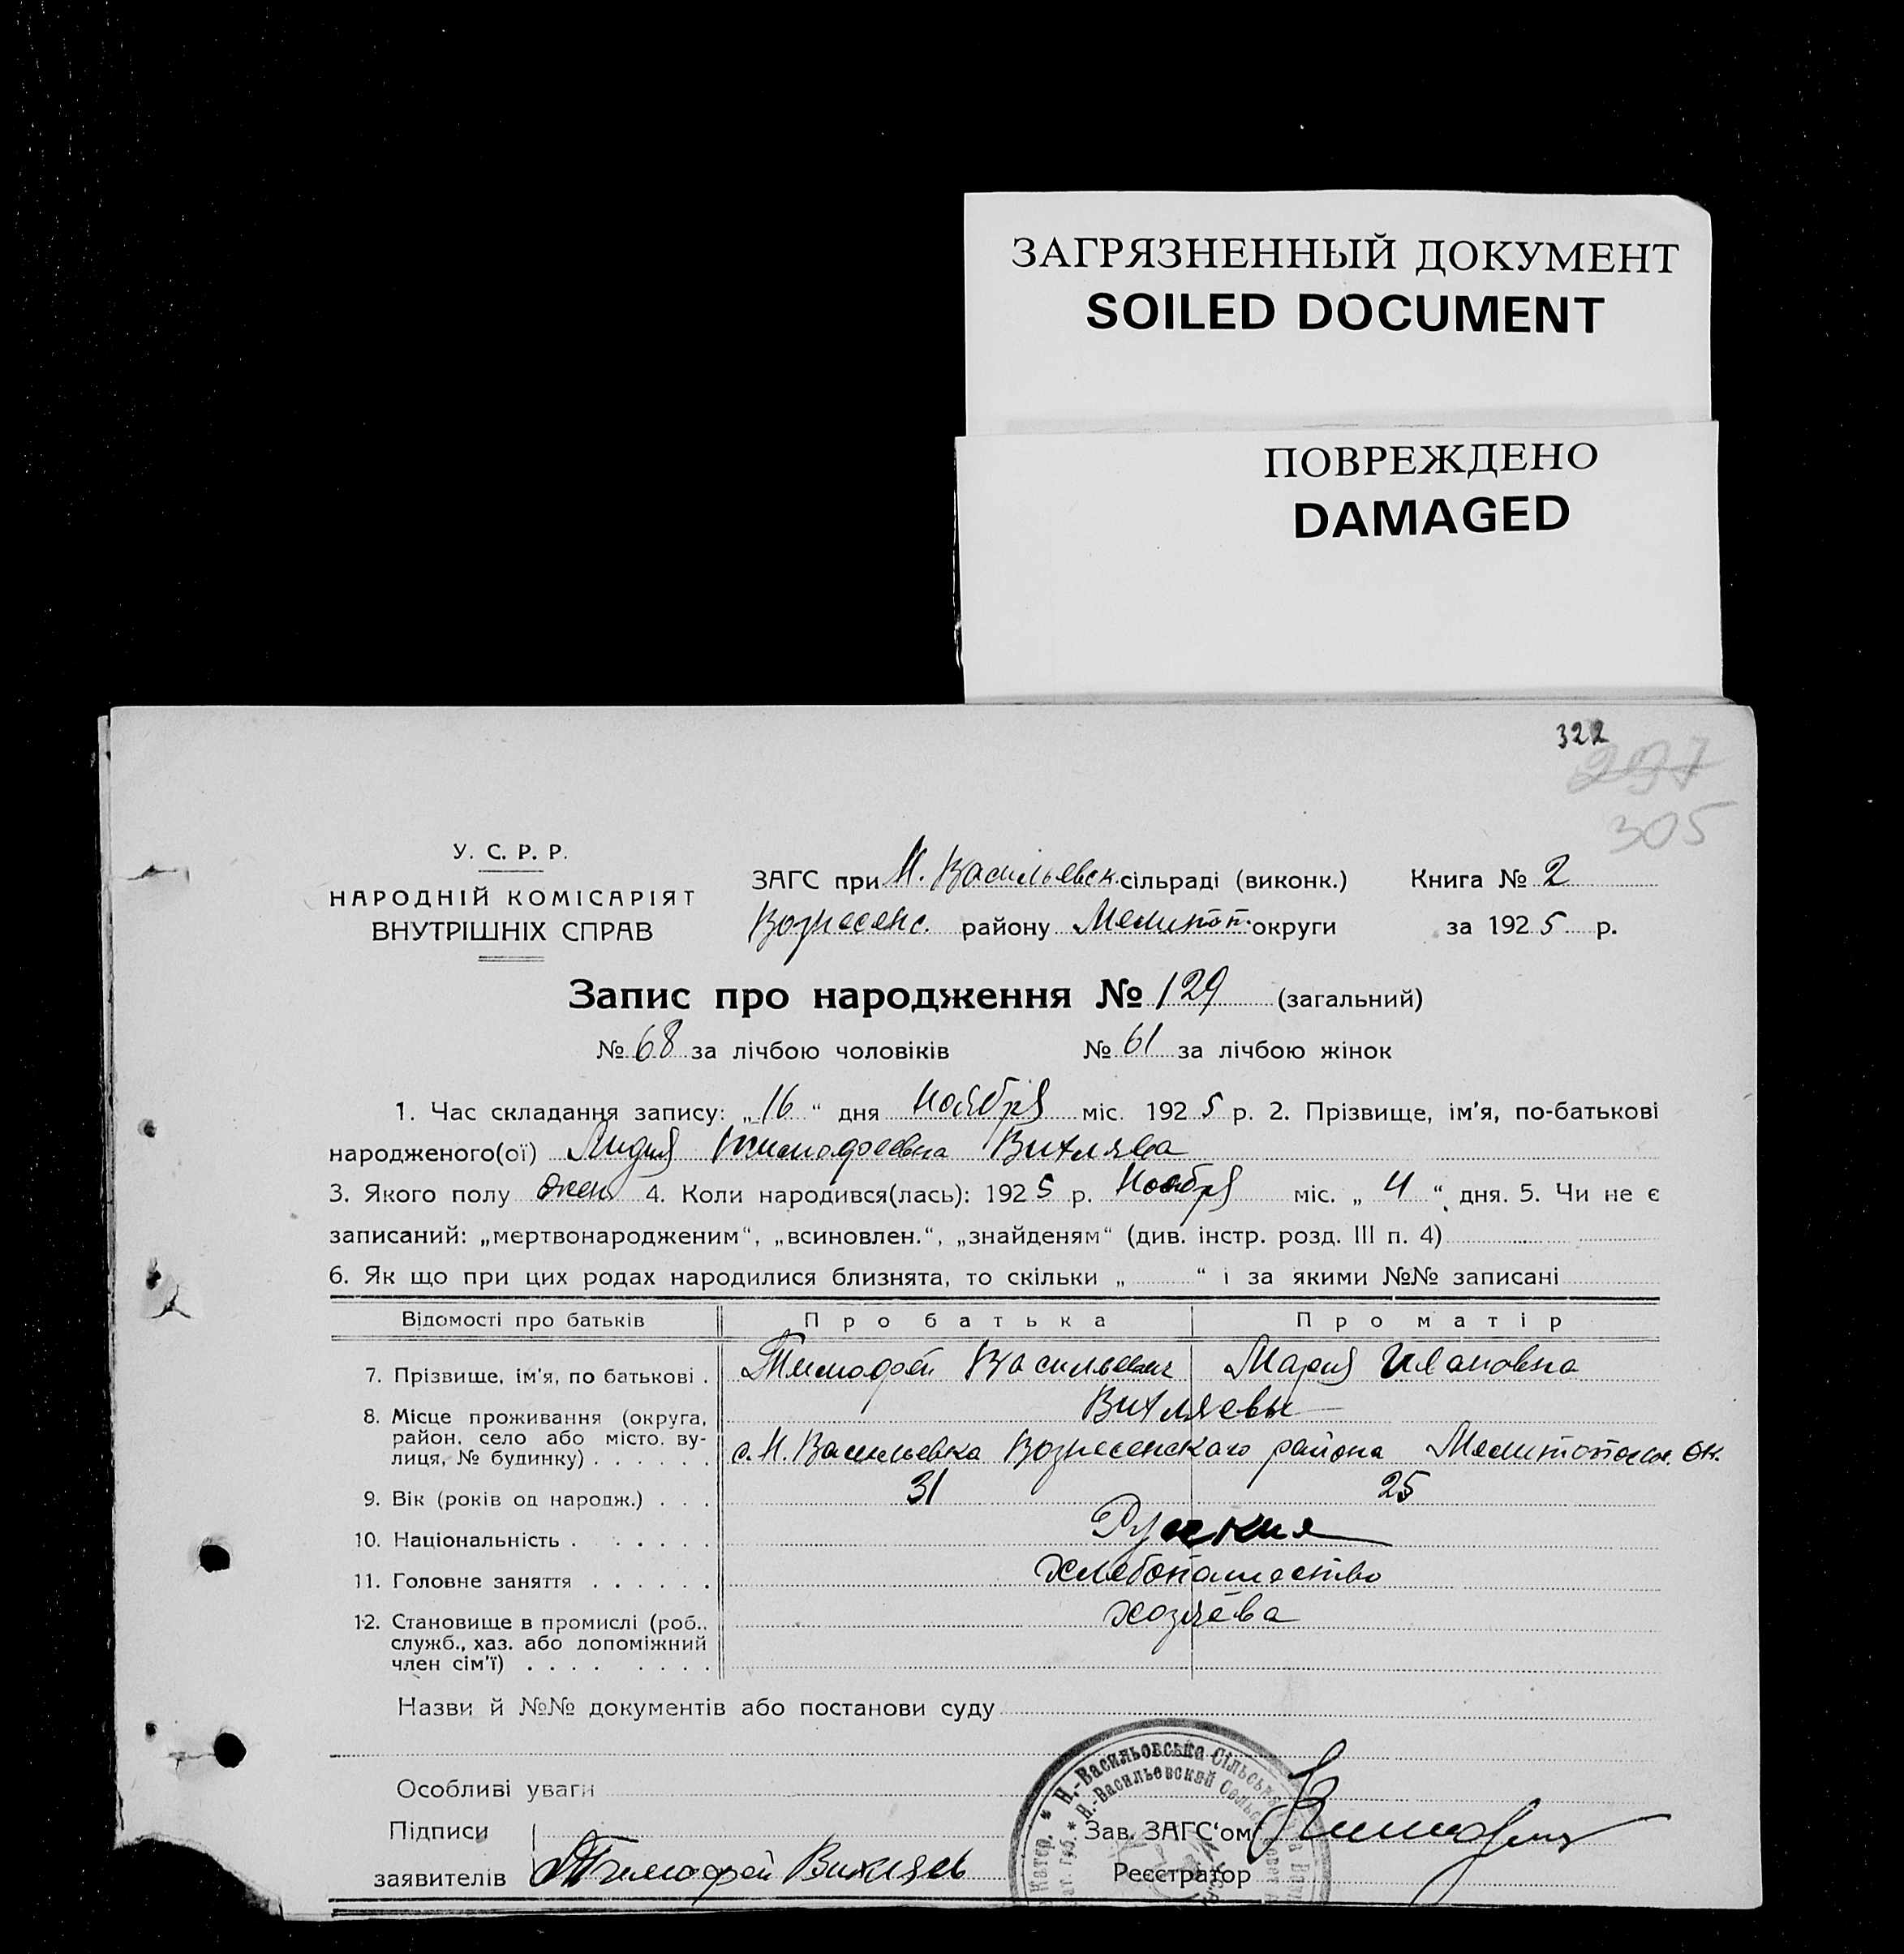 ЗАГРЯЗНЕННЫЙ ДОКУМЕНТ
SOILED DOCUMENT
ПОВРЕЖДЕНО
DAMAGED
322
297
305
У. С. Р. Р.
НАРОДНІЙ КОМІСАРІЯТ
ВНУТРІШНІХ СПРАВ
ЗАГС при Н. Васильевск. сільраді (виконк.) Книга № 2
Вознесенс. району Мелитоп. округи за 1925 р.
Запис про народження № 129 (загальний)
№ 68 за лічбою чоловіків № 61 за лічбою жінок
1. Час складання запису: „16“ дня Ноября міс. 1925 р. 2. Прізвище, ім'я, по-батькові
народженого(ої) Лидия Тимофеевна
3. Якого полу жен 4. Коли народився(лась): 1925 р. Ноября міс. „ 4 “ дня. 5. Чи не є
записаний: „мертвонародженим“, „всиновлен.“, „знайденям“ (див. інстр. розд. III п. 4)
6. Як що при цих родах народилися близнята, то скільки „ “ і за якими №№ записані
Відомості про батьків Про батька Про матір
7. Прізвище, ім'я, по батькові . Тимофей Васильевич Мария Ивановна
8. Місце проживання (округа,
район, село або місто, ву-
лиця, № будинку) . . . . . . с. Н. Васильевка Вознесенскаго района Мелитопольск. ок.
9. Вік (років од народж.) . . . 31 25
10. Національність . . . . . . Руские
11. Головне заняття . . . . . . хлебопашество
12. Становище в промислі (роб.,
служб., хаз. або допоміжний
член сім'ї) . . . . . . . . хозяева
Назви й №№ документів або постанови суду
Особливі уваги
Н.-Васильовська Сільська
Н.-Васильевский Сельс
Підписи
заявителів Тимофей
Зав. ЗАГС'ом
Реєстратор